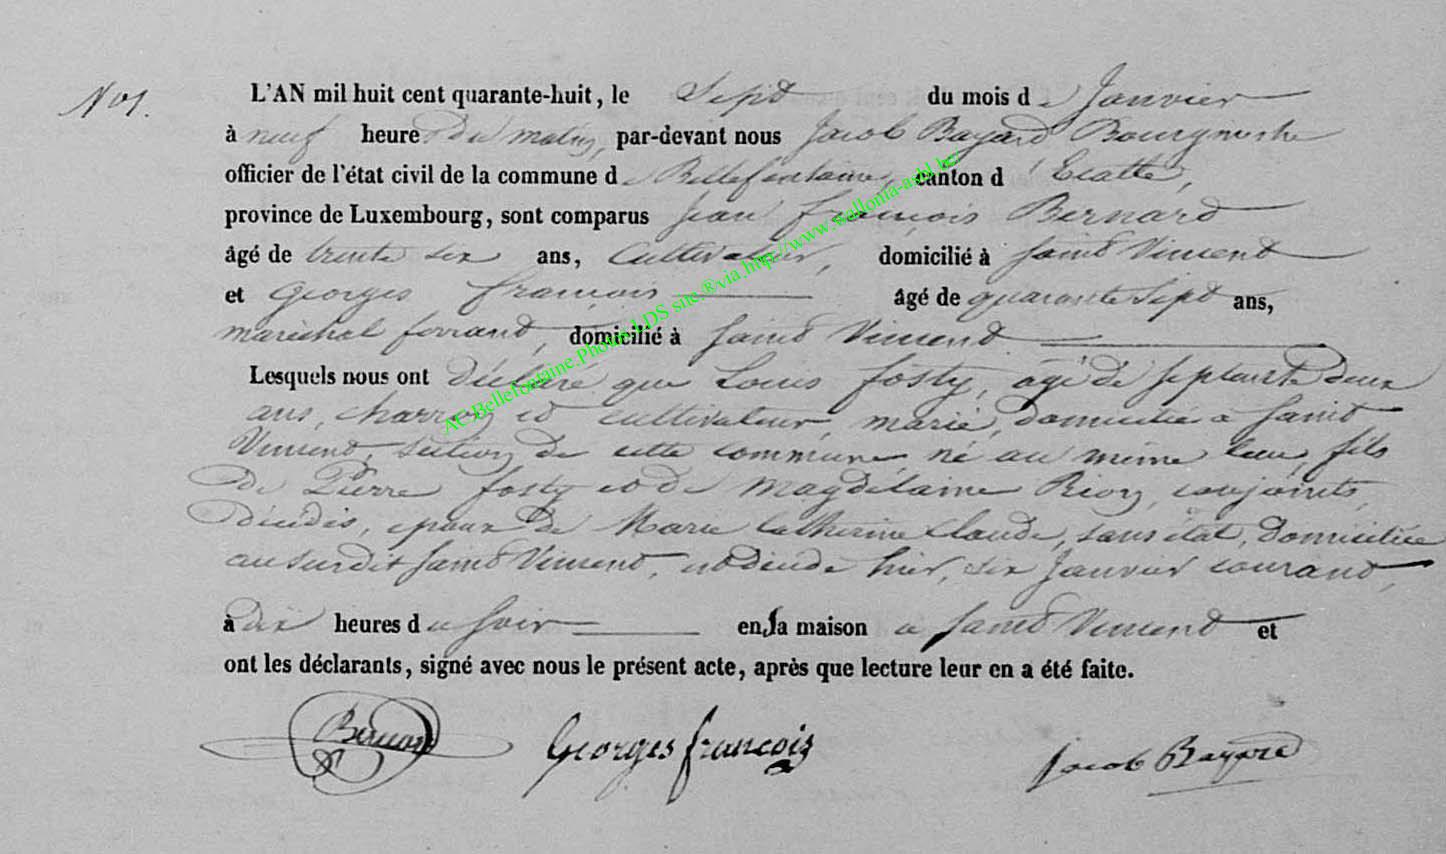 No 1.
L'AN mil huit cent quarante-huit, le Sept du mois de Janvier
à neuf heures du matin, par-devant nous Jacob Bayard Bourgmestre
officier de l'état civil de la commune de Bellefontaine, canton d'Etalle,
province de Luxembourg, sont comparus Jean François Bernard
âgé de trente six ans, Cultivateur, domicilié à Saint Vincent
et Georges François âgé de quarante Sept ans,
maréchal ferrand, domicilié à Saint Vincent
Lesquels nous ont déclaré que Louis fosty, agé de septante deux
ans, charron et cultivateur, marié, domicilié à Saint
Vincent, section de cette commune, né au même lieu, fils
de Pierre fosty et de Magdelaine Rion, conjoints,
décédés, epoux de Marie Catherine Claude, sans état, domiciliée
au susdit Saint Vincent, est décédé hier, six Janvier courant,
à dix heures du soir en sa maison a Saint Vincent et
ont les déclarants, signé avec nous le présent acte, après que lecture leur en a été faite.
Bernard Georges françois Jacob Bayard
AC.Bellefontaine.Photos LDS site.®via.http://www.wallonia-asbl.be/